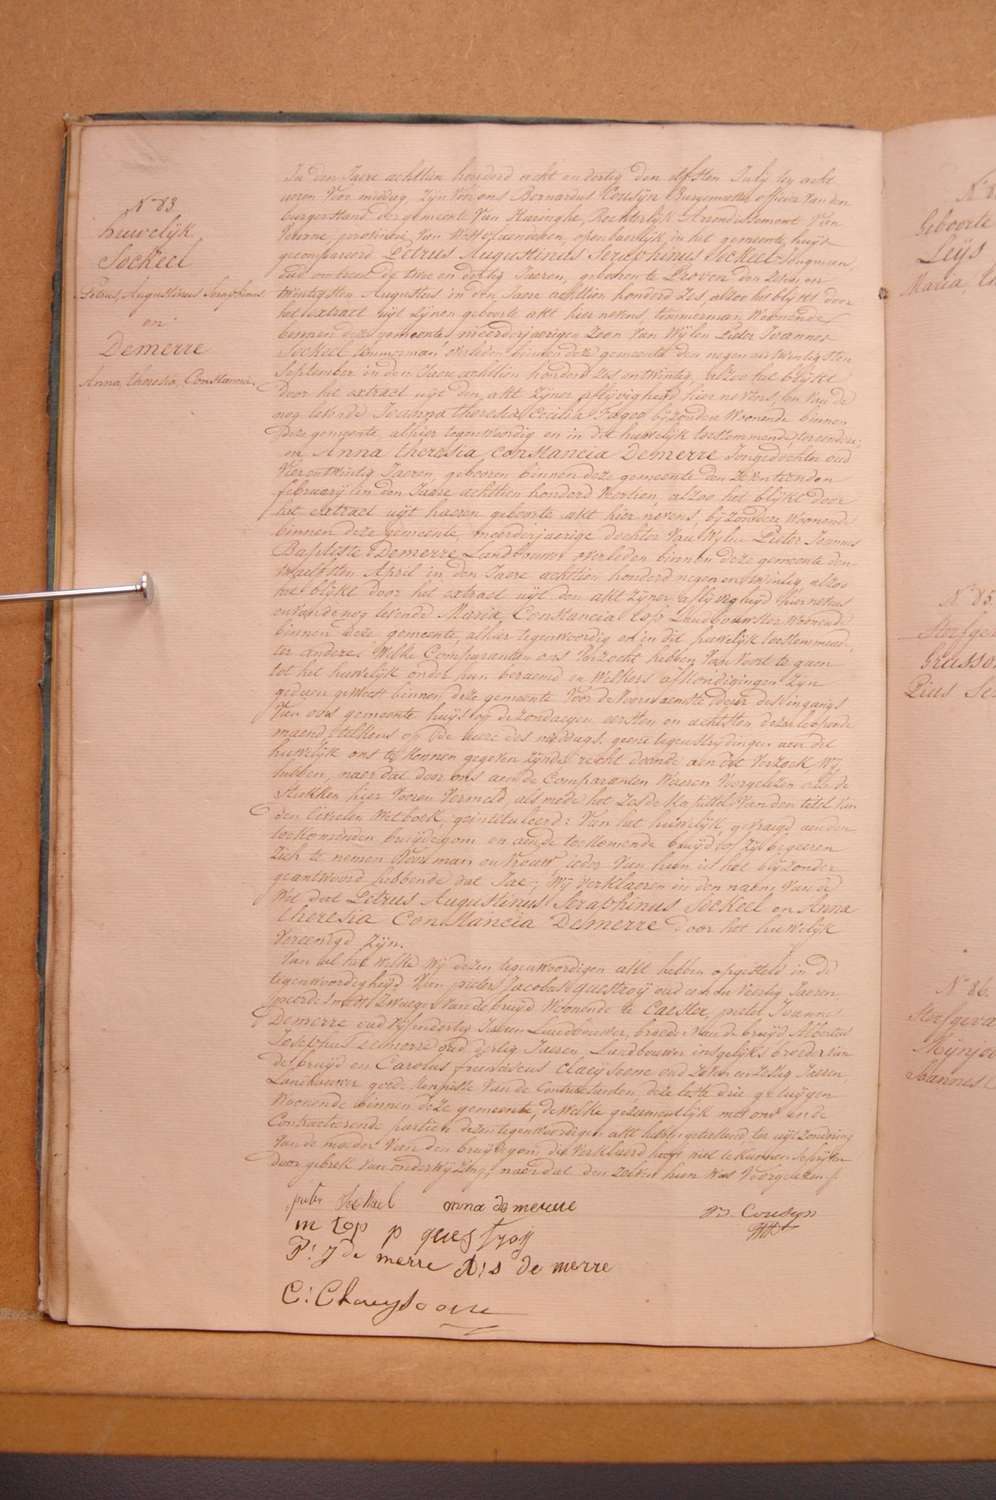 N° 83.
huwelijk
Sockeel
Petrus, Augustinus Seraphinus
en
Demerre
Anna, theresia, Constancia.
In den Jaere achttien honderd acht en dertig den elfsten July ten acht
ueren Voor middag, Zijn Voor ons Bernardus Cousijn Burgemeester officier Van den
burgerstand der gemeente Van Haringhe, Rechterlijk Arrondissement
Veurne, provintie Van Westvlaenderen, openbaerlijk, in het gemeente huijs
gecompareerd Petrus Augustinus Seraphinus Sockeel Jongman,
oud omtrent de twee en dertig Jaeren, geboren te Proven den Zeven en
twintigsten Augustus in den Jaere achttien honderd Zes, alzoo het blijkt door
het extract uijt Zijnen geboorte akt hier nevens, timmerman, Woonende
binnen deze gemeente, meerderjaerigen Zoon Van Wijlen Pieter Joannes
Sockeel timmerman overleden binnen deze gemeente den negen en twintigsten
September in den Jaere achttien honderd Zes en twintig, alzoo het blijkt
Door het extract uijt den akt Zijner aflijvigheid hier nevens, en Van de
nog levende Joanna theresia Cecilia Fagoo bijzondere Woonende binnen
Deze gemeente, alhier tegenwoordig en in dit huwelijk toestemmende, ter eendere:
en Anna theresia Constancia Demerre Jongedochter oud
Vier en twintig Jaeren, geboren binnen deze gemeente den Zeventienden
february in den Jaere achttien honderd Veertien, alzoo het blijkt door
het extract uijt haeren geboorte akt hier nevens, bijzondere Woonende
binnen deze gemeente, meerderjaerige dochter Van Wijlen Pieter Joannes
Baptiste Demerre Landbouwer overleden binnen deze gemeente den
twaelfsten April in den Jaere achttien honderd negen en twintig, alzoo
het blijkt door het extract uijt den akt Zijner aflijvigheijd hier nevens
en Van de nog levende Maria, Constancia top Landbouwster Woonende
binnen deze gemeente, alhier tegenwoordig en in dit huwelijk toestemmende,
ter andere. Welke Comparanten ons Verzocht hebben Van Voort te gaen
tot het huwelijk onder hun beraemd en Welkers afkondigingen Zijn
gedaen geweest binnen deze gemeente Voor de Voornaemste deur des ingangs
Van ons gemeente huijs op de zondagen eersten en achtsten dezer loopende
maend, telkens op de uere des middags, geene tegenstrijdingen aen dit
huwelijk ons te kennen gegeven Zijnde, recht doende aen dit Verzoek, Wij
hebben, naer dat door ons aen de Comparanten Waeren Voorgelezen alle de
Stukken hier Vooren Vermeld, als mede het Zesde kapittel Van den titel Van
den Civielen Wetboek, geintituleerd: Van het huwelijk, gevraegd aen den
toekomenden bruijdegom en aende toekomende bruijd of Zij begeeren
Zich te nemen Voor man en Vrouw, ieder Van hun in het bijzonder
geantwoord hebbende dat Jae; Wij Verklaeren in den naem Van de
Wet dat Petrus Augustinus Seraphinus Sockeel en Anna
theresia Constancia Demerre door het huwelijk
Vereenigd Zijn.
Van al het Welke Wij dezen tegenwoordigen akt hebben opgesteld in de
tegenwoordigheijd Van pieter Jacobus questroij oud een en Veertig Jaeren,
Smid Zwager Van de bruijd Woonende te Caester, pieter Joannes
Demerre oud Vijf en dertig Jaeren Landbouwer, broeder Van de bruijd, Albertus
Josephus Demerre oud dertig Jaeren, Landbouwer insgelijks broeder Van
de bruijd en Carolus franciscus Claeysoone oud Zeven en Zestig Jaeren,
Landbouwer goede kennisse Van de Contractanten, deze leste drie getuijgen
Woonende binnen deze gemeente, de Welke gezaementlijk met ons en de
Contracterende partien dezen tegenwoordigen akt hebben geteekend ter uijtzondering
Van de moeder Van den bruijdegom die Verklaerd heeft niet te kunnen Schrijven
door gebrek Van onderwijzing, naer dat den zelven hun Was Voorgelezen./.
pieter Sockeel anna de meure
m top p questroy
P: J de merre A: s de merre
C: Claeysoone
B. Cousijn
N° 8
Geboorte
Leijs
Maria,
N° 85
Sterfgeval
Grusson
Pius Se
N° 86.
Sterfgeval
Joannes